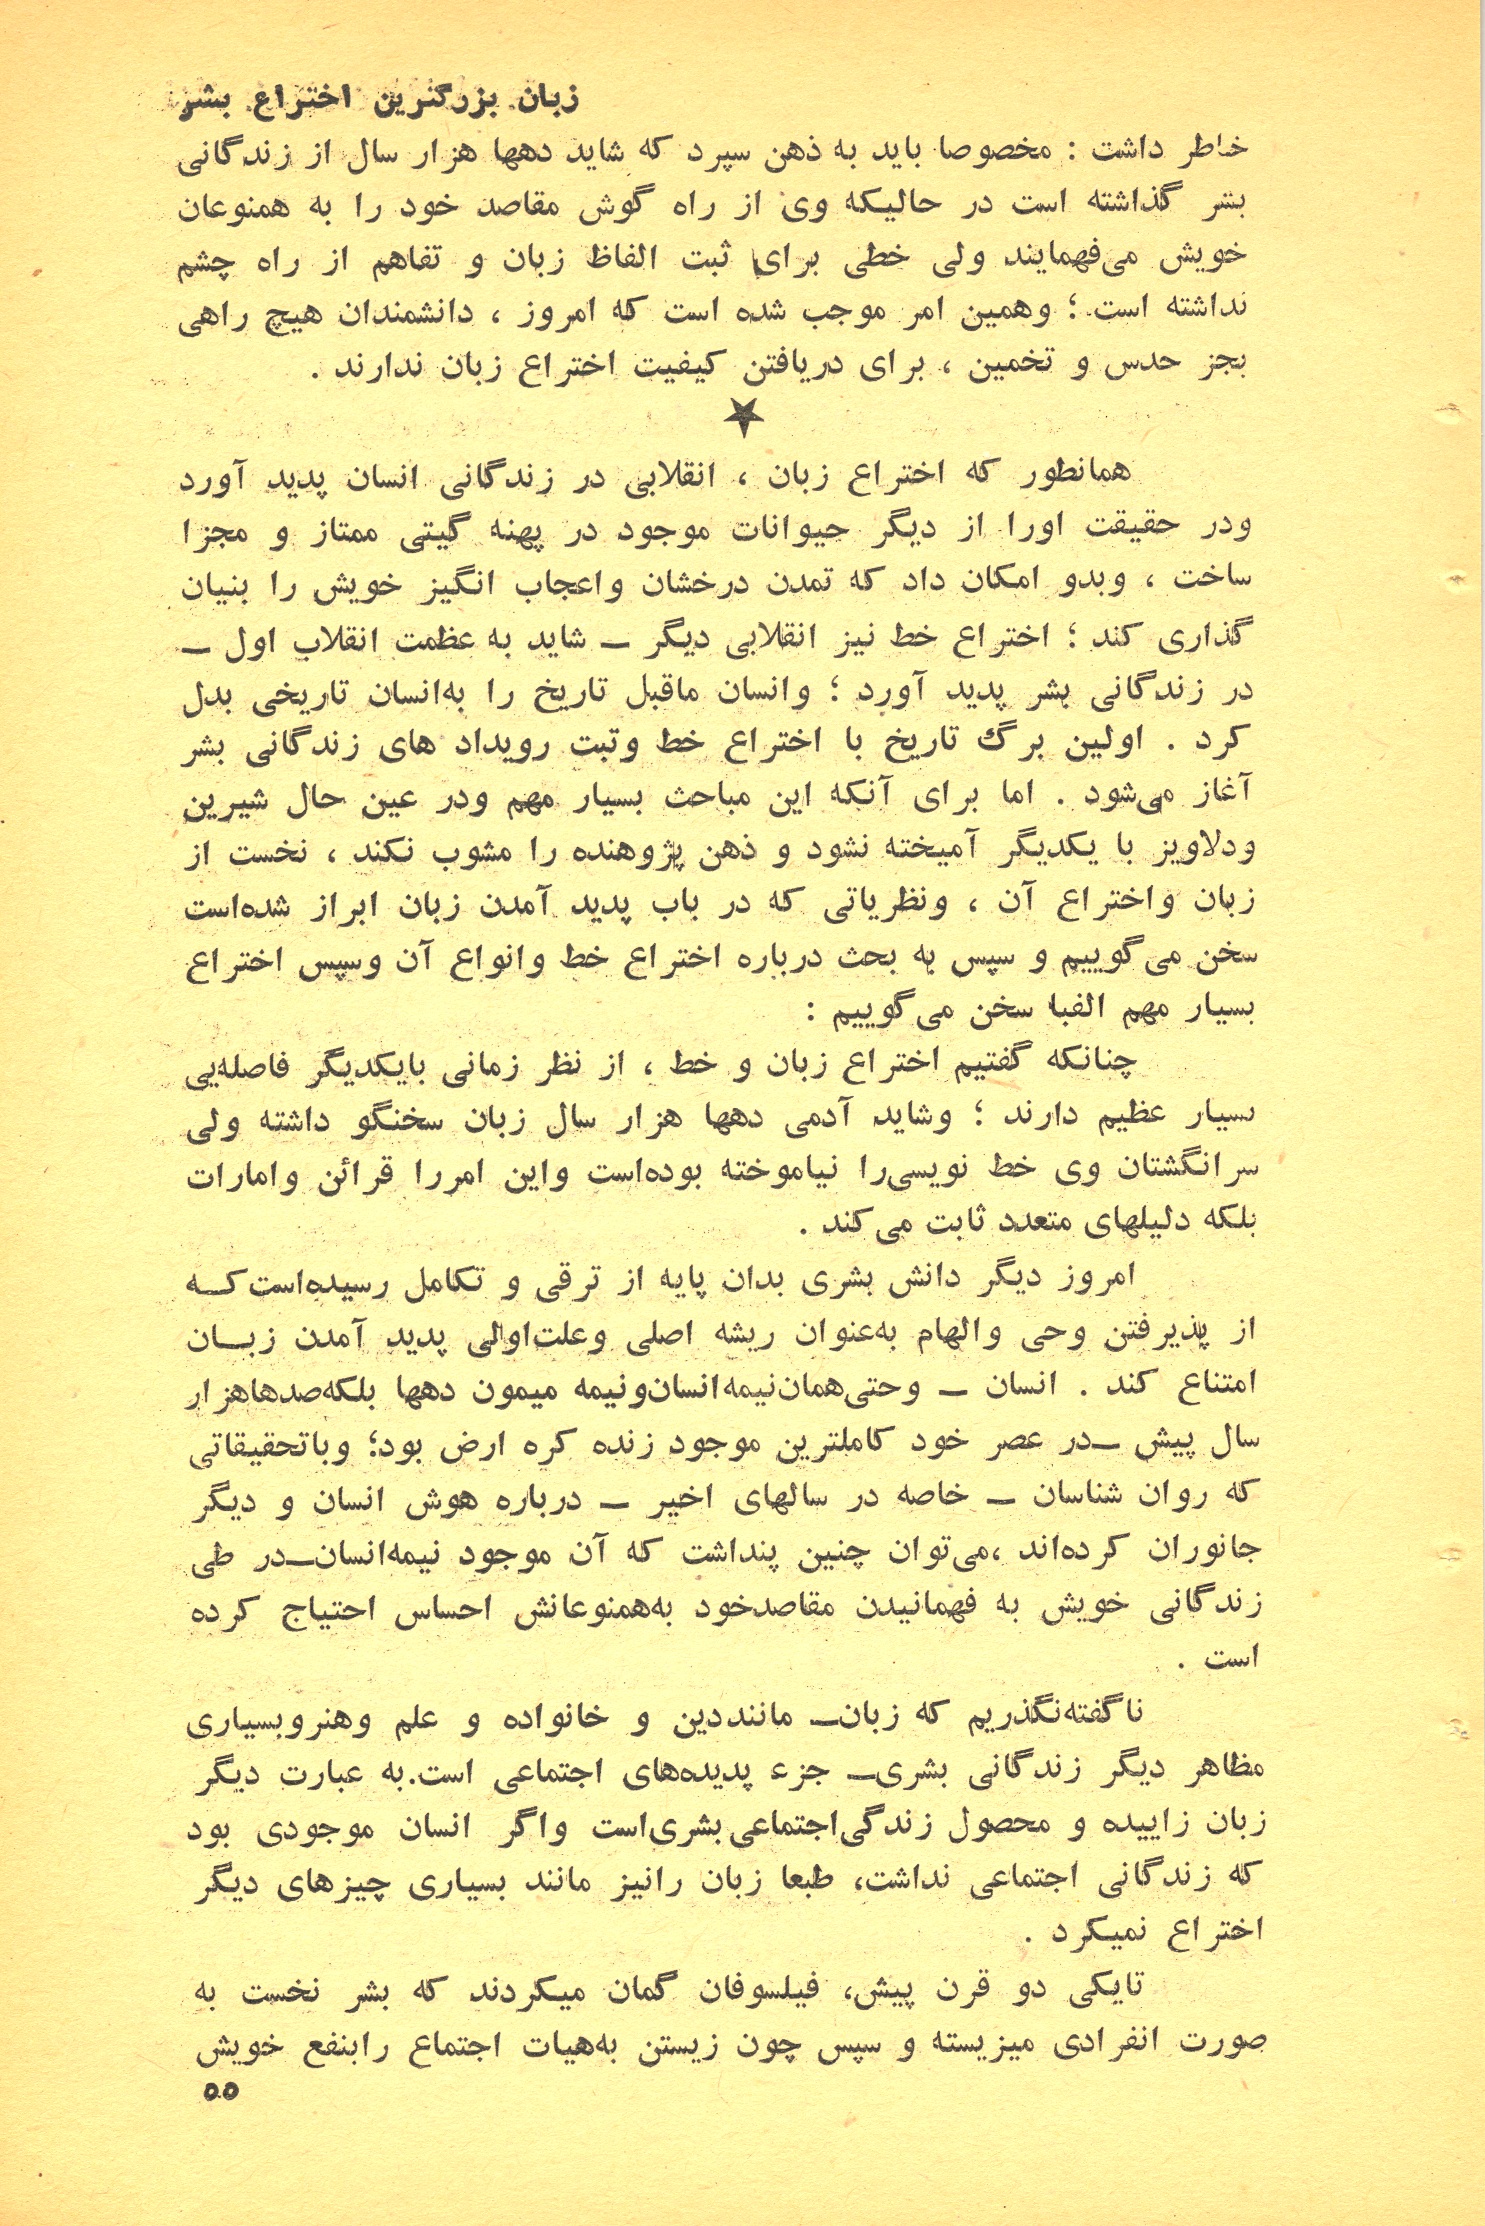 زبان بزرگترین اختراع بشر
خاطر داشت : مخصوصا باید به ذهن سپرد که شاید دهها هزار سال از زندگانی
بشر گذاشته است در حالیکه وی از راه گوش مقاصد خود را به همنوعان
خویش می‌فهمایند ولی خطی برای ثبت الفاظ زبان و تفاهم از راه چشم
نداشته است ؛ وهمین امر موجب شده است که امروز ، دانشمندان هیچ راهی
بجز حدس و تخمین ، برای دریافتن کیفیت اختراع زبان ندارند .
★
همانطور که اختراع زبان ، انقلابی در زندگانی انسان پدید آورد
ودر حقیقت اورا از دیگر حیوانات موجود در پهنه گیتی ممتاز و مجزا
ساخت ، وبدو امکان داد که تمدن درخشان واعجاب انگیز خویش را بنیان
گذاری کند ؛ اختراع خط نیز انقلابی دیگر ـ شاید به عظمت انقلاب اول ـ
در زندگانی بشر پدید آورد ؛ وانسان ماقبل تاریخ را به‌انسان تاریخی بدل
کرد . اولین برگ تاریخ با اختراع خط وثبت رویداد های زندگانی بشر
آغاز می‌شود . اما برای آنکه این مباحث بسیار مهم ودر عین حال شیرین
ودلاویز با یکدیگر آمیخته نشود و ذهن پژوهنده را مشوب نکند ، نخست از
زبان واختراع آن ، ونظریاتی که در باب پدید آمدن زبان ابراز شده‌است
سخن می‌گوییم و سپس به بحث درباره اختراع خط وانواع آن وسپس اختراع
بسیار مهم الفبا سخن می‌گوییم :
چنانکه گفتیم اختراع زبان و خط ، از نظر زمانی بایکدیگر فاصله‌یی
بسیار عظیم دارند ؛ وشاید آدمی دهها هزار سال زبان سخنگو داشته ولی
سرانگشتان وی خط نویسی‌را نیاموخته بوده‌است واین امررا قرائن وامارات
بلکه دلیلهای متعدد ثابت می‌کند .
امروز دیگر دانش بشری بدان پایه از ترقی و تکامل رسیده‌است‌کــه
از پذیرفتن وحی والهام به‌عنوان ریشه اصلی وعلت‌اولی پدید آمدن زبــان
امتناع کند . انسان ـ وحتی‌همان‌نیمه‌انسان‌ونیمه میمون دهها بلکه‌صدهاهزار
سال پیش ـدر عصر خود کاملترین موجود زنده کره ارض بود؛ وباتحقیقاتی
که روان شناسان ـ خاصه در سالهای اخیر ـ درباره هوش انسان و دیگر
جانوران کرده‌اند ،می‌توان چنین پنداشت که آن موجود نیمه‌انسان‌ـ‌در طی
زندگانی خویش به فهمانیدن مقاصدخود به‌همنوعانش احساس احتیاج کرده
است .
ناگفته‌نگذریم که زبان‌ـ ماننددین و خانواده و علم وهنروبسیاری
مظاهر دیگر زندگانی بشری‌ـ جزء پدیده‌های اجتماعی است.به عبارت دیگر
زبان زاییده و محصول زندگی‌اجتماعی‌بشری‌است واگر انسان موجودی بود
که زندگانی اجتماعی نداشت، طبعا زبان رانیز مانند بسیاری چیزهای دیگر
اختراع نمیکرد .
تایکی دو قرن پیش، فیلسوفان گمان میکردند که بشر نخست به
صورت انفرادی میزیسته و سپس چون زیستن به‌هیات اجتماع رابنفع خویش
۵۵